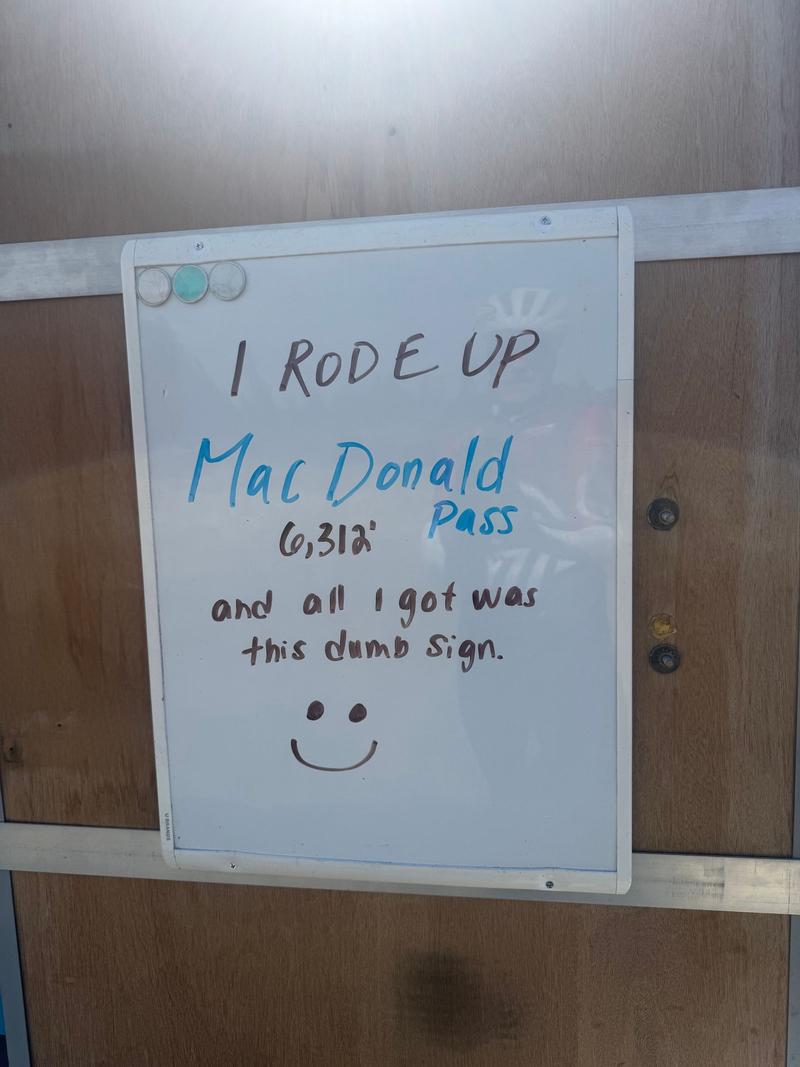 I RODE UP
MacDonald
Pass
6,312'
and all I got was
this dumb sign.
U BRANDS